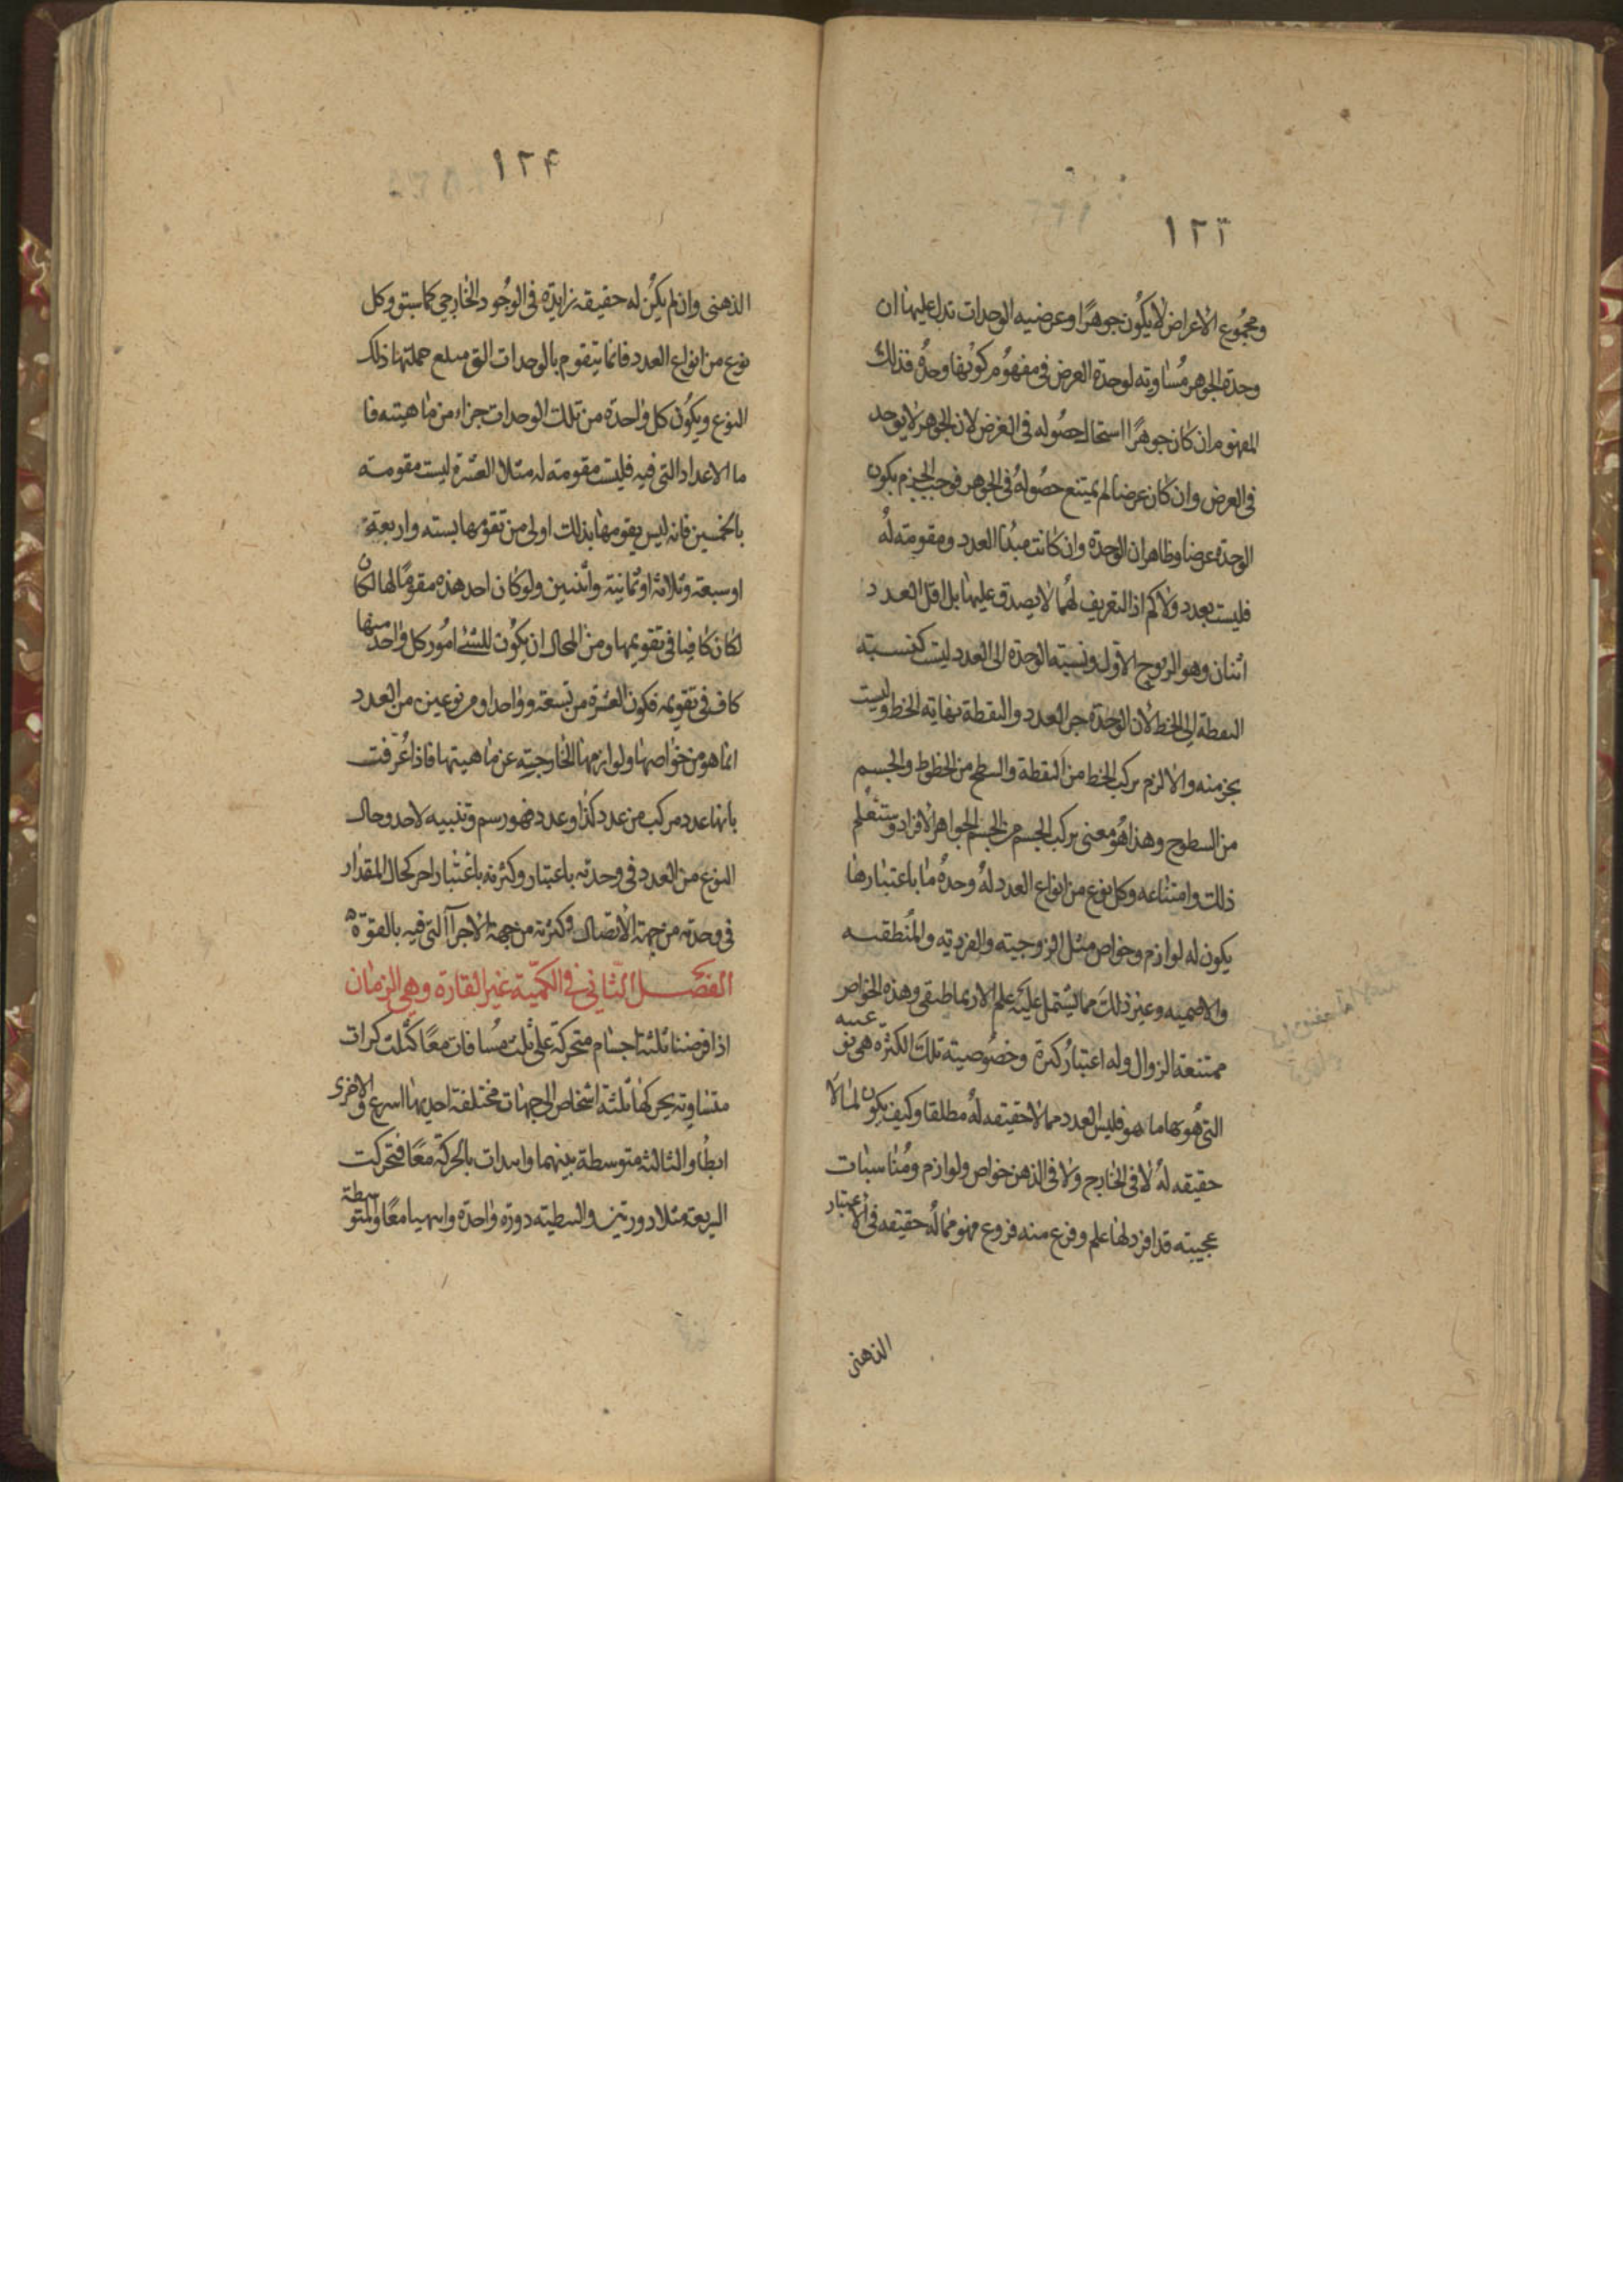 ١٢٣
ومجموع الاعراض لا يكون جوهرًا وعرضيه الوحدات تدل عليها ان
وحدة الجوهر مساويه لوحدة العرض فى مفهوم كونها وحدة فذلك
المفهوم ان كان جوهرًا استحال حصوله فى العرض لان الجوهر لا يوجد
فى العرض وان كان عرضا لم يمتنع حصوله فى الجوهر فوجب الجزم بكون
الوحدة عرضا وظاهر ان الوحدة وان كانت مبدا العدد ومقومته له
فليست بعدد ولا كم اذ التعريف لهما لا يصدق عليها بل اقل العدد
اثنان وهو الزوج الاول ونسبته الوحدة الى العدد ليست كنسبته
النقطة الى الخط لان الوحدة جز العدد والنقطة نهايته الخط وليست
بجزمنه والا لزم تركب الخط من النقطة والسطح من الخطوط والجسم
من السطوح وهذا هو معنى تركب الجسم من الجسم الجواهر الافراد وستعلم
ذلك وامتناعه وكل نوع من انواع العدد له وحدة ما باعتبارها
يكون له لوازم وخواص مثل الزوجيته والفرديته والمنطقيه
والاصميه وغير ذلك مما يشتمل عليه علم الارثماطيقى وهذه الخواص
ممتنعة الزوال وله اعتبار كثرة وخصوصيته تلك الكثرة هى نوعيته
التى هو بها ما هو فليس العدد مما لا حقيقه له مطلقا وكيف يكون لما لا
حقيقه له لا فى الخارج ولا فى الذهن خواص ولوازم ومناسبات
عجيبته قد افرد لها علم وفرع منه فروع فهو مما له حقيقه فى الاعتبار
الذهنى
١٢۴
الذهنى وان لم يكن له حقيقه زايدة فى الوجود الخارجى كما سبق وكل
نوع من انواع العدد فانما يتقوم بالوحدات التى مبلع جملتها ذلك
النوع ويكون كل واحدة من تلك الوحدات جزاء من ماهيته فا
ما الاعداد التى فيه فليست مقومته له مثلا العشرة ليست مقومته
بالخمسين فانه ليس يقومها بذلك اولى من تقومها بسته واربعة
او سبعة وثلاثة او ثمانية واثنين ولو كان احد هذه مقومًا لها لكان
لكان كافيا فى تقويمها ومن المحال ان يكون للشئ امور كل واحد منها
كاف فى تقويمه فكون العشرة من تسعة وواحد او من نوعين من العدد
انما هو من خواصها ولوازمها الخارجيه عن ماهيتها فاذا عُرّفت
بانها عدد مركب من عدد كذا وعدد فهو رسم وتنبيه لاحد وحال
النوع من العدد فى وحدته باعتبار وكثرته باعتبار اخر كحال المقدار
فى وحدته من جهة الاتصال وكثرته من جهة الاجزآ التى فيه بالقوّة ه
الفصل الثانى فى الكميّة غير القارة وهى الزمان
اذا فرضنا ثلثة اجسام متحركة على ثلث مسافات معًا كثلث كرات
متساويته يحركها ثلثة اشخاص الى جهات مختلفة احديها اسرع والاخرى
ابطا والثالثه متوسطة بينهما وابتدات بالحركة معًا فتحركت
السريعة مثلا دورتين والبطيته دورة واحدة وانتهيا معًا والمتوسطة